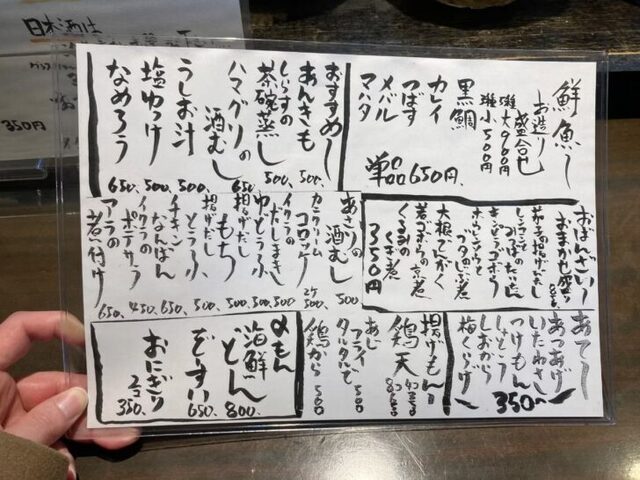 鮮魚〜
お造り
盛合せ
大900円
小500円
黒鯛
カレイ
つばす
メバル
マハタ
単品650円
おすすめ〜
あんきも 500、
しらすの
茶碗蒸し 500、
ハマグリの
酒むし 650
うしお汁 500、
塩ゆっけ 500、
なめろう 650、
あさりの
酒むし 500
カニクリーム
コロッケ 2ケ 500、
イクラの
だしまきし 500
ゆどうふ 500、
揚げだし
もち 500、
揚げだし
とうふ 500、
チキン
なんばん 650、
イクラの
ポテサラ 450、
アラの
煮付け 650、
おばんざい〜
おまかせ盛り
茄子の揚げだし
きんぴらゴボウ
大根でんがく
くるみの
350円
あて〜
あつあげ
いたわさ
つけもん
しおから
梅くらげ
350〜
揚げもん〜
鶏天
あじ
フライ
タルタルで 500
鶏から 500
〆もん
海鮮どん 800、
ぞうすい 650、
おにぎり 2コ 350、
日本酒は
350円